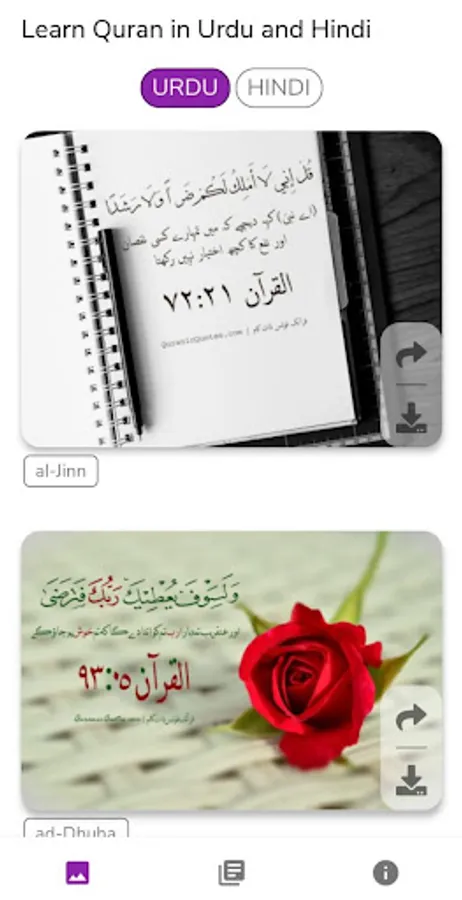 Learn Quran in Urdu and Hindi
URDU
HINDI
قُلْ إِنِّي لَا أَمْلِكُ لَكُمْ ضَرًّا وَلَا رَشَدًا
(اے نبی) کہہ دیجیے کہ میں تمہارے کسی نقصان
اور نفع کا کچھ اختیار نہیں رکھتا
القرآن ٧٢:٢١
QuranicQuotes.com | قرآنک کوٹس ڈاٹ کام
al-Jinn
وَلَسَوْفَ يُعْطِيكَ رَبُّكَ فَتَرْضَىٰ
اور عنقریب تمہارا رب تم کو اتنا دے گا کہ تم خوش ہو جاؤ گے
القرآن ٩٣:٠٥
QuranicQuotes.com | قرآنک کوٹس ڈاٹ کام
ad-Dhuha